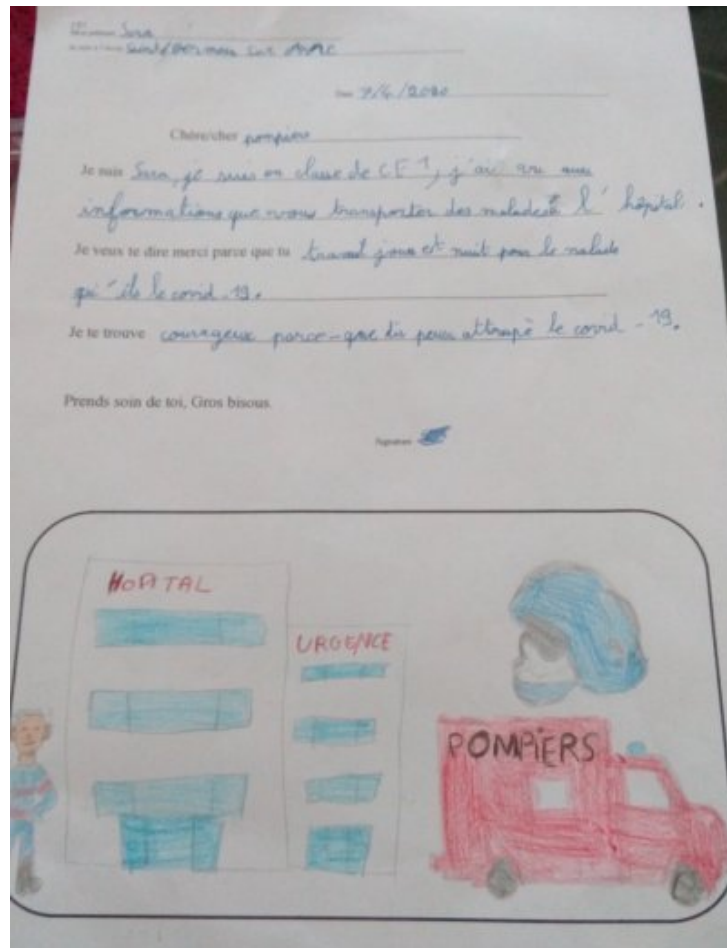 Sara
Saint Germain sur
7/4/2020
Chère/cher pompiers
Je suis Sara, je suis en classe de CE1, j'ai vu aux
informations que vous transporter des malades à l'hôpital.
Je veux te dire merci parce que tu travail jour et nuit pour le malade
qu'ils le covid-19.
Je te trouve courageux parce-que tu peux attrapé le covid-19.
Prends soin de toi, Gros bisous.
Signature
HOPITAL
URGENCE
POMPIERS